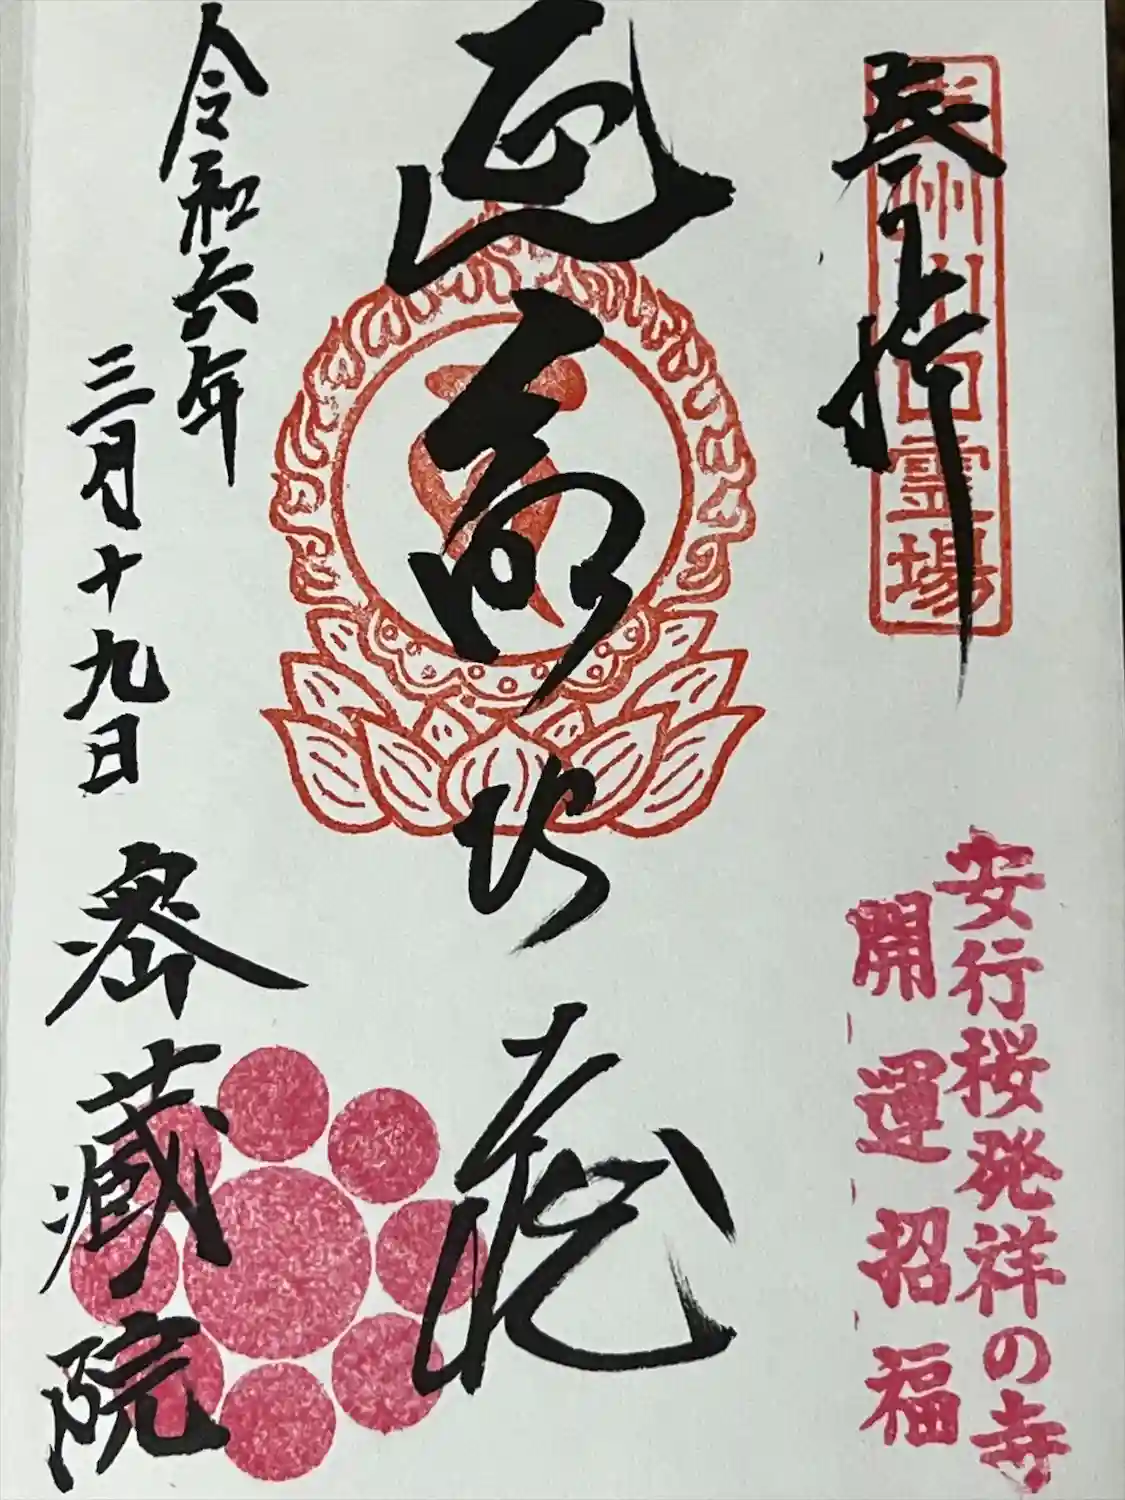 奉拝
州川口霊場
安行桜発祥の寺
開運招福
延命地蔵
令和六年
三月十九日
密蔵院